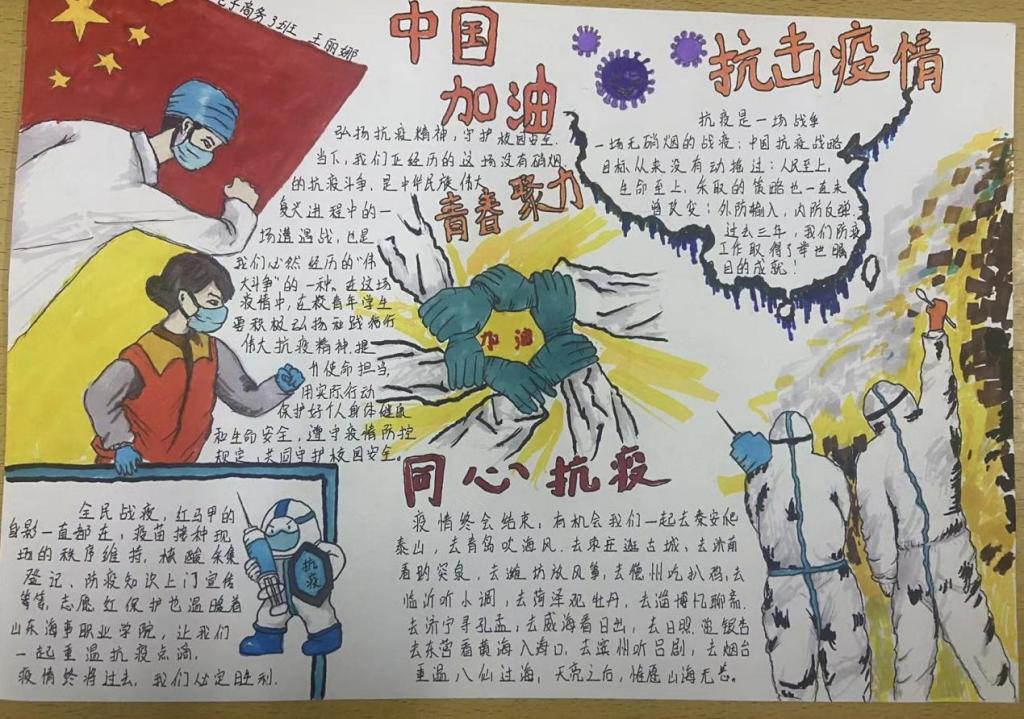 电子商务3班 王丽娜
中国
加油
抗击疫情
弘扬抗疫精神,守护校园安全.
当下,我们正经历的这场没有硝烟
的抗疫斗争,是中华民族伟大
复兴进程中的一
场遭遇战,也是
我们必然经历的“伟
大斗争”的一种.在这场
疫情中,在校青年学生
要积极弘扬和践行
伟大抗疫精神,提
升使命担当,
用实际行动
保护好个人身体健康
和生命安全,遵守疫情防控
规定,共同守护校园安全。
青春聚力
加油
抗疫是一场战争
一场无硝烟的战疫;中国抗疫战略
目标从来没有动摇过:人民至上,
生命至上,采取的策略也一直未
曾改变:外防输入,内防反弹.
过去三年,我们防疫
工作取得了举世瞩
目的成就!
同心抗疫
全民战疫,红马甲的
身影一直都在,疫苗接种现
场的秩序维持,核酸采集
登记、防疫知识上门宣传
等等,志愿红保护也温暖着
山东海事职业学院,让我们
一起重温抗疫点滴,
疫情终将过去,我们必定胜利.
抗疫
疫情终会结束,有机会我们一起去泰安爬
泰山,去青岛吹海风.去枣庄逛古城,去济南
看趵突泉,去潍坊放风筝,去德州吃扒鸡,去
临沂听小调,去菏泽观牡丹,去淄博忆聊斋.
去济宁寻孔孟,去威海看日出,去日照追银杏
去东营看黄海入海口,去滨州听吕剧,去烟台
重温八仙过海,天亮之后,惟愿山海无恙。